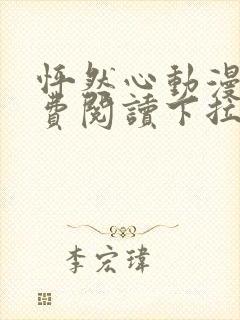 怦然心動漫
費閱讀下拉
李宏瑋